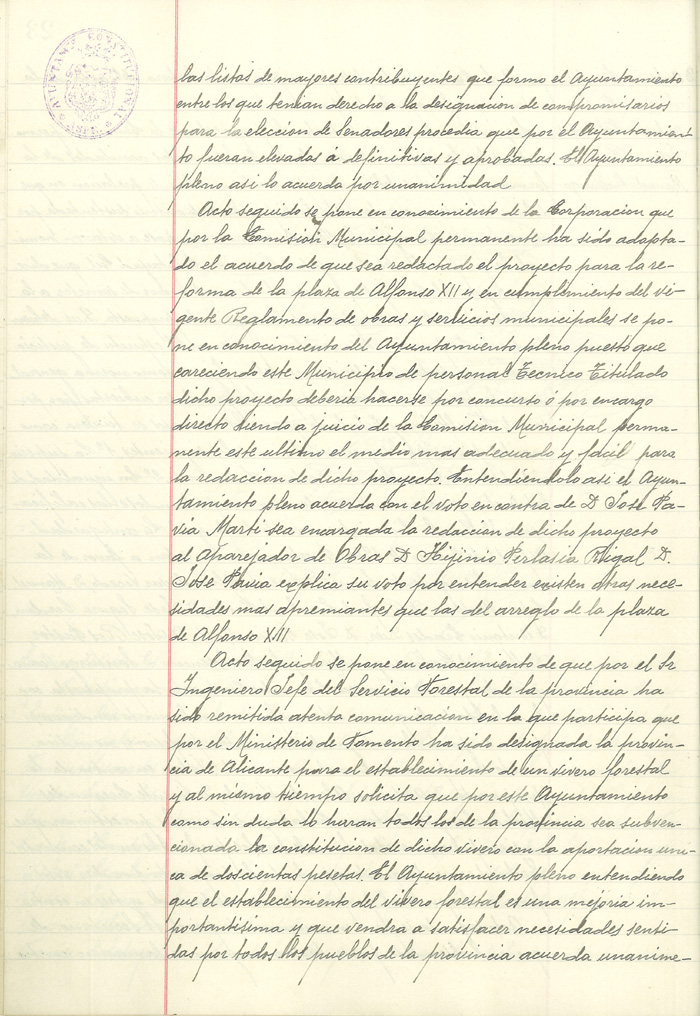 AYUNTAMTO CONSTITUCIONAL
las listas de mayores contribuyentes que formo el Ayuntamiento
entre los que tenian derecho a la designacion de compromisarios
para la eleccion de Senadores procedia que por el Ayuntamien-
to fueran elevadas á definitivas y aprobadas. El Ayuntamiento
pleno asi lo acuerda por unanimidad
Acto seguido se pone en conocimiento de la Corporacion que
por la Comision Municipal permanente ha sido adopta-
do el acuerdo de que sea redactado el proyecto para la re-
forma de la plaza de Alfonso XII y en cumplimiento del vi-
gente Reglamento de obras y servicios municipales se po-
ne en conocimiento del Ayuntamiento pleno puesto que
careciendo este Municipio de personal Tecnico Titulado
dicho proyecto deberia hacerse por concurso ó por encargo
directo siendo a juicio de la Comision Municipal perma-
nente este ultimo el medio mas adecuado y facil para
la redaccion de dicho proyecto. Entendiendolo asi el Ayun-
tamiento pleno acuerda con el voto en contra de D José Pa-
via Marti sea encargada la redaccion de dicho proyecto
al Aparejador de Obras D Hijinio Perlasia Rigal D.
Jose Pavia explica su voto por entender existen otras nece-
sidades mas apremiantes que las del arreglo de la plaza
de Alfonso XII
Acto seguido se pone en conocimiento de que por el Sr
Ingeniero Jefe del Servicio Forestal de la provincia ha
sido remitida atenta comunicacion en la que participa que
por el Ministerio de Fomento ha sido designada la provin-
cia de Alicante para el establecimiento de un vivero forestal
y al mismo tiempo solicita que por este Ayuntamiento
como sin duda lo harran todos los de la provincia sea subven-
cionada la constitucion de dicho vivero con la aportacion uni-
ca de doscientas pesetas. El Ayuntamiento pleno entendiendo
que el establecimiento del vivero forestal es una mejoria im-
portantisima y que vendra a satisfacer necesidades senti-
das por todos los pueblos de la provincia acuerda unanime-